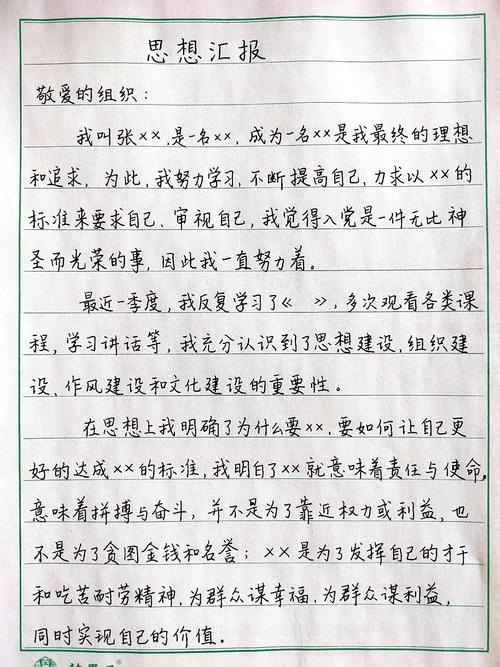 思想汇报
敬爱的组织：
我叫张××,是一名××，成为一名××是我最终的理想
和追求，为此，我努力学习，不断提高自己，力求以××的
标准来要求自己、审视自己，我觉得入党是一件无比神
圣而光荣的事，因此我一直努力着。
最近一季度，我反复学习了《　》，多次观看各类课
程，学习讲话等，我充分认识到了思想建设、组织建
设、作风建设和文化建设的重要性。
在思想上我明确了为什么要××，要如何让自己更
好的达成××的标准，我明白了××就意味着责任与使命，
意味着拼搏与奋斗，并不是为了靠近权力或利益，也
不是为了贪图金钱和名誉；××是为了发挥自己的才干
和吃苦耐劳精神，为群众谋幸福，为群众谋利益，
同时实现自己的价值．